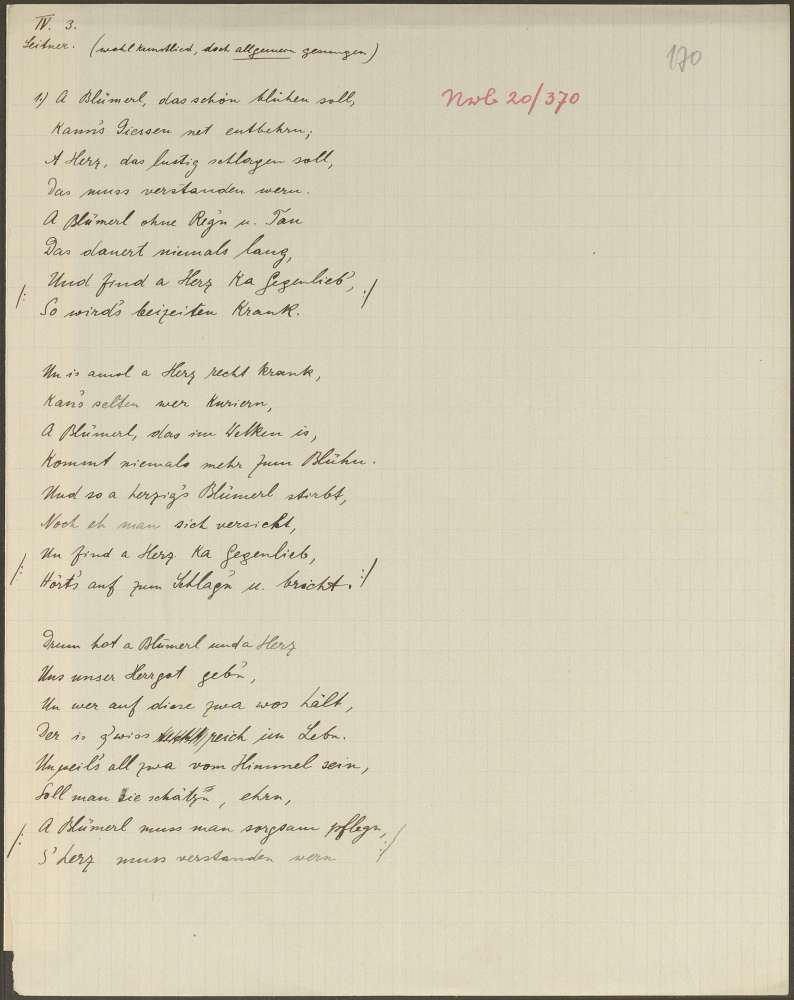 IV. 3.
Leitner. (wohl Kunstlied, doch allgemein gesungen)
170
Nwb 20/370
1.) A Blümerl, das schön blühen soll,
Kann's Giessen net entbehrn;
A Herz, das lustig schlagen soll,
Das muss verstanden wern.
A Blümerl ohne Reg'n u. Tau
Das dauert niemals lang,
/: Und find a Herz Ka Gegenlieb', :/
So wird's beizeiten Krank.
Un is amol a Herz recht krank,
Kan's selten wer Kuriern,
A Blümerl, das im Welken is,
Kommt niemals mehr zum Blühn.
Und so a herzig's Blümerl stirbt,
Noch eh man sich versicht,
/: Un find a Herz Ka Gegenlieb,
Hört's auf zum Schlag'n u. bricht. :/
Drum hot a Blümerl und a Herz
Uns unser Herrgot geb'n,
Un wer auf diese zwa wos hält,
Der is g'wiss reich im Lebn.
Un weil's all zwa vom Himmel sein,
Soll man sie schätz'n, ehrn,
/: A Blümerl muss man sorgsam pflegn, :/
S' herz muss verstanden wern